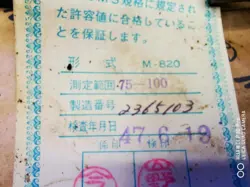 規格に規定され
た許容値に合格しているこ
とを保証します。
形 式 M-820
測定範囲 75-100
製造番号 2365103
検査年月日 47.6.19